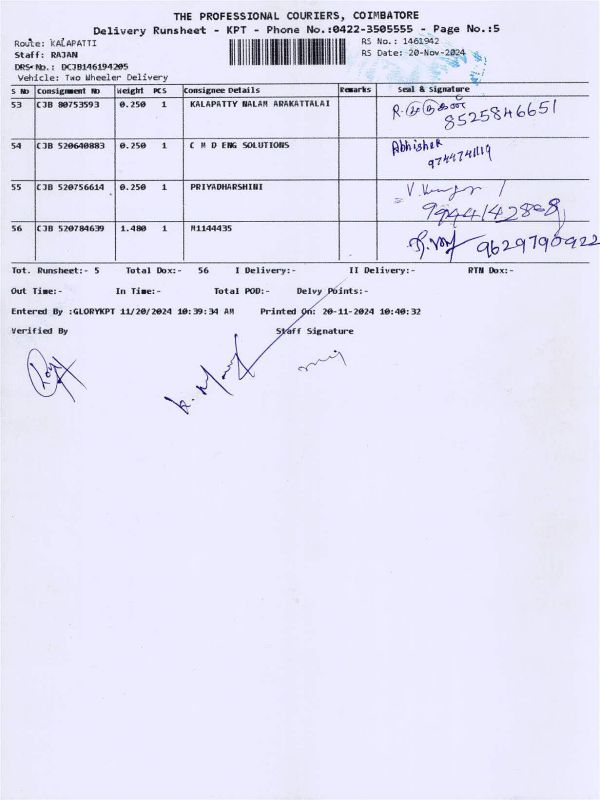 THE PROFESSIONAL COURIERS, COIMBATORE
Delivery Runsheet - KPT - Phone No.:0422-3505555 - Page No.:5
Route: KALAPATTI RS No.: 1461942
Staff: RAJAN RS Date: 20-Nov-2024
DRS No.: DCJB146194205
Vehicle: Two Wheeler Delivery
S No Consignment No Weight PCS Consignee Details Remarks Seal & Signature
53 CJB 80753593 0.250 1 KALAPATTY NALAM ARAKATTALAI R.
8525846651
54 CJB 520640883 0.250 1 C M D ENG SOLUTIONS Abhishek
9744741119
55 CJB 520756614 0.250 1 PRIYADHARSHINI V.
56 CJB 520784639 1.480 1 M1144435 9629790922
Tot. Runsheet:- 5 Total Dox:- 56 I Delivery:- II Delivery:- RTN Dox:-
Out Time:- In Time:- Total POD:- Delvy Points:-
Entered By :GLORYKPT 11/20/2024 10:39:34 AM Printed On: 20-11-2024 10:40:32
Verified By Staff Signature